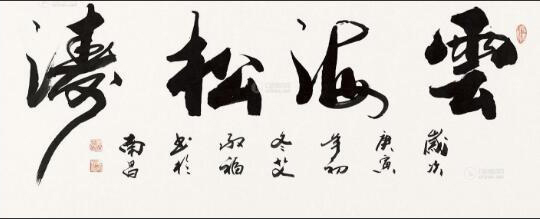 雲海松濤
歲次
庚寅
年初
冬艾
敬福
書於
南昌